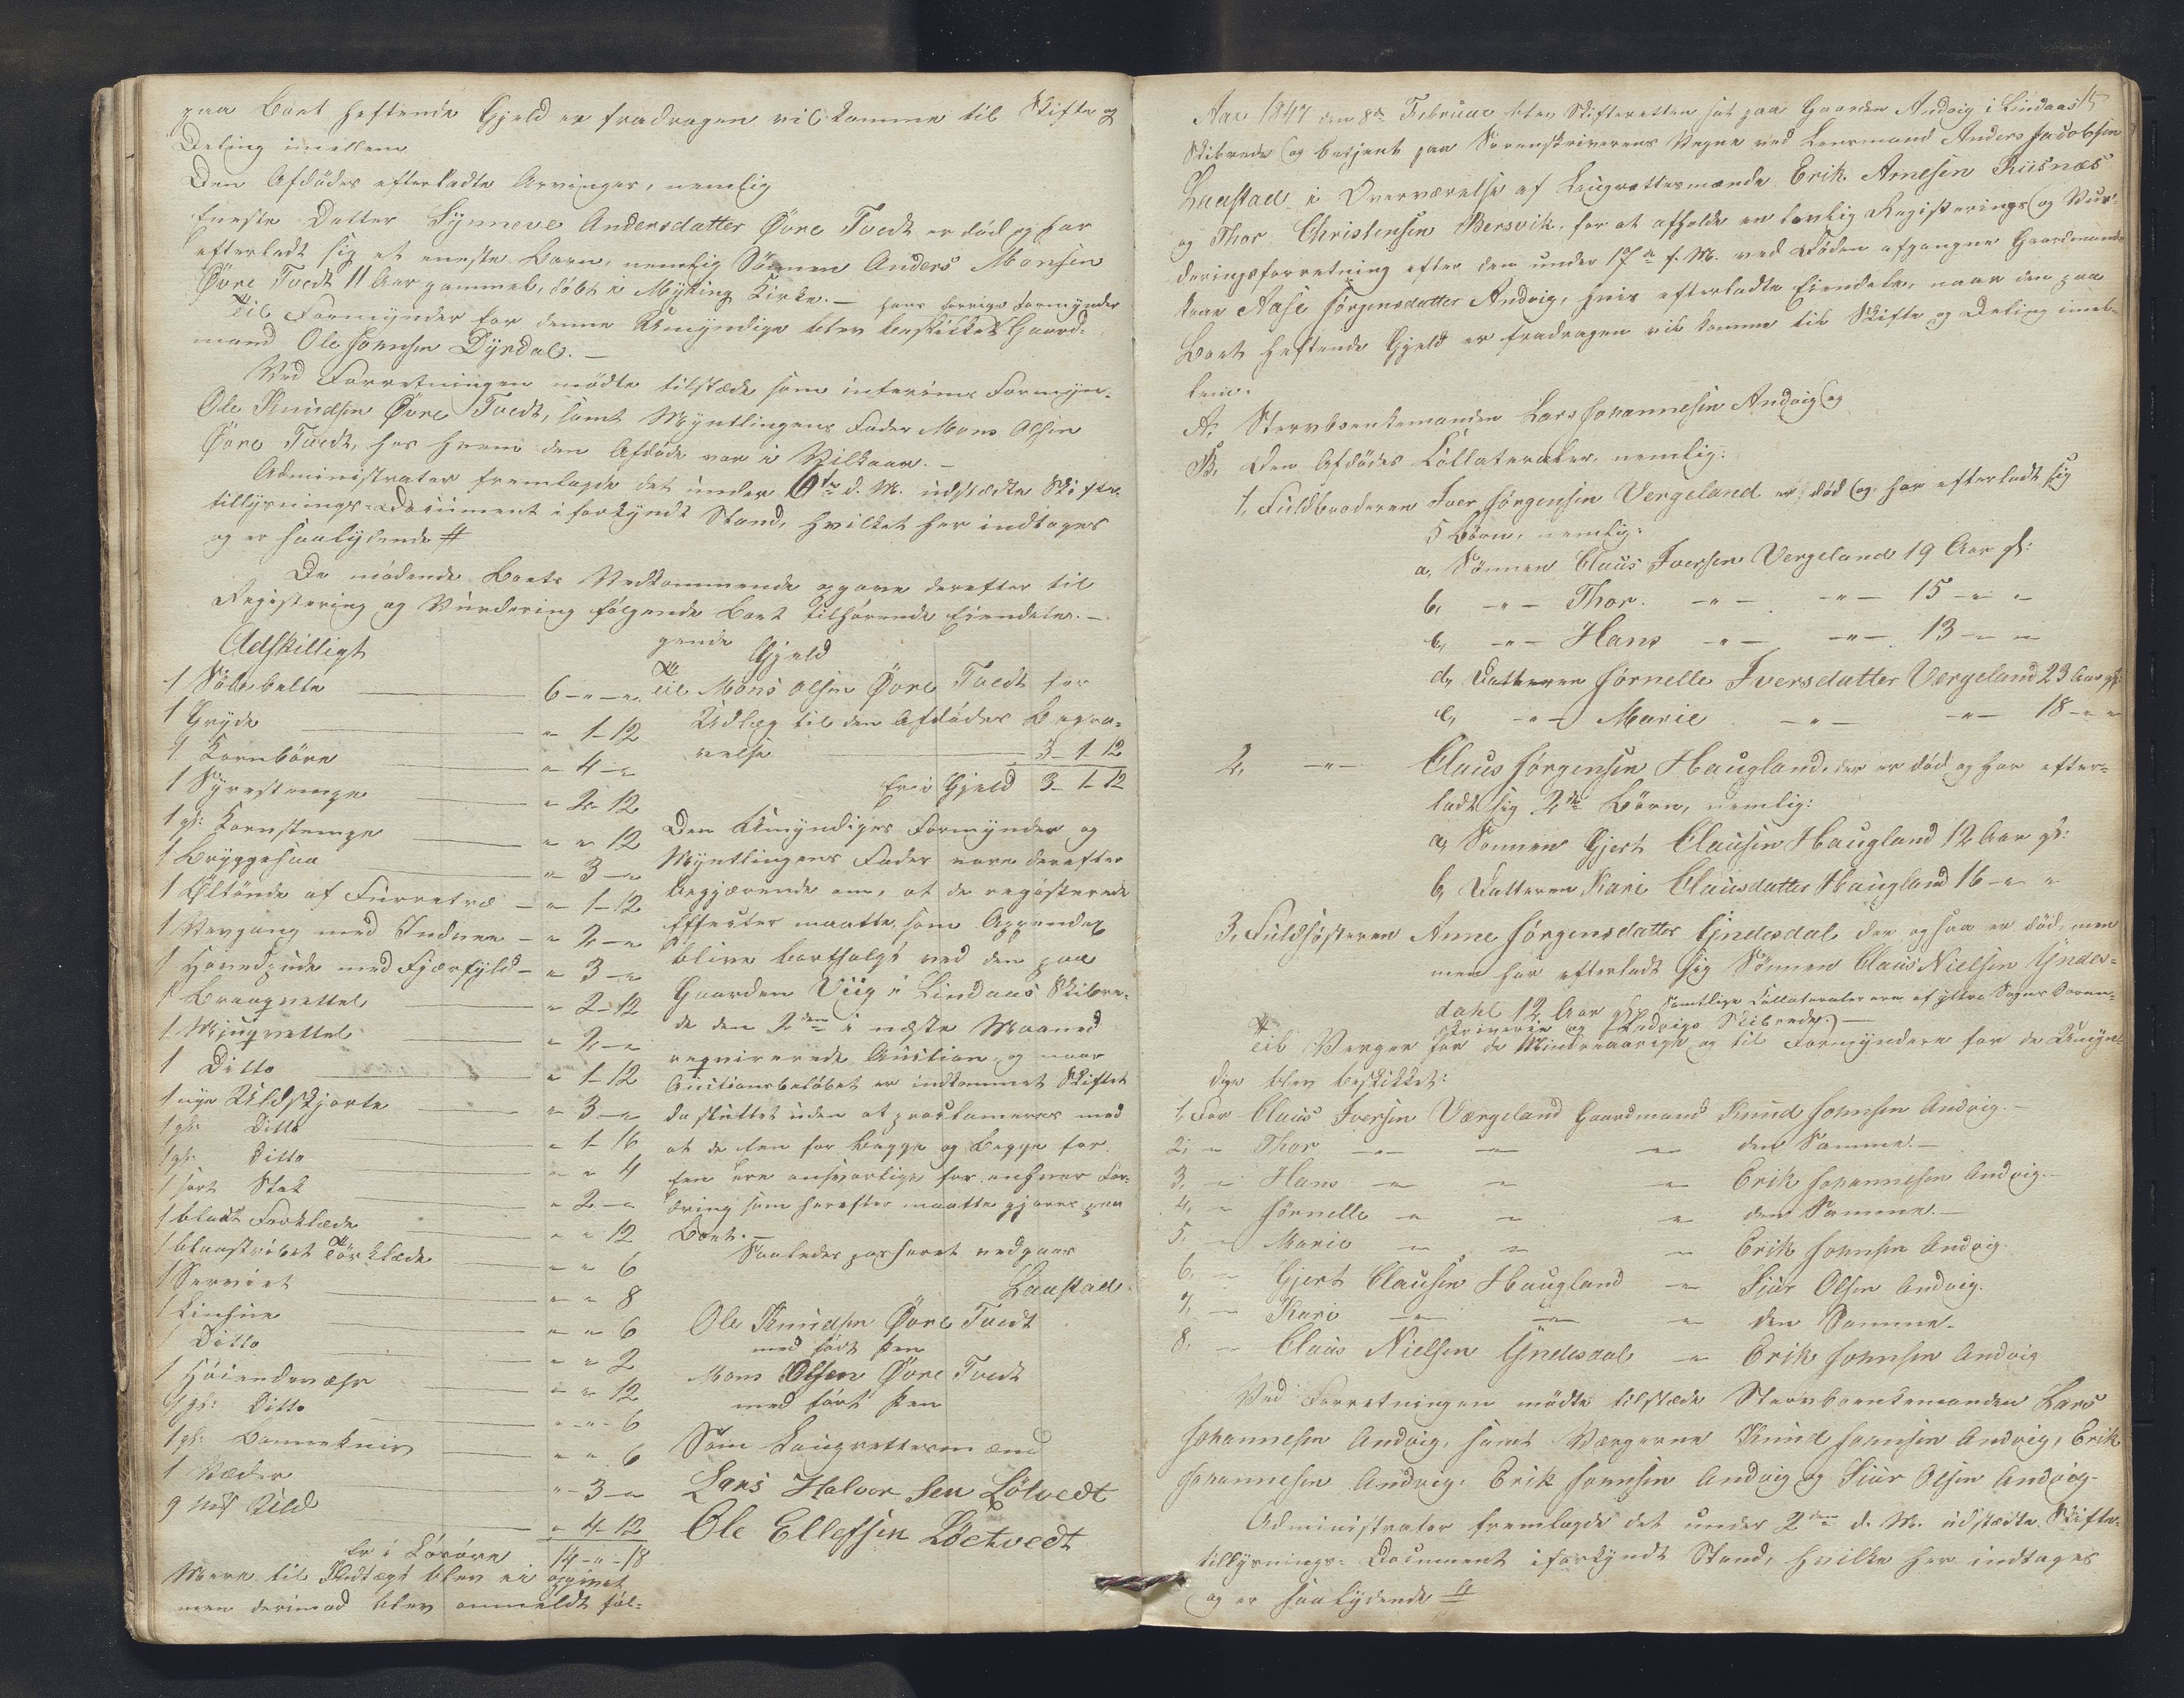 paa Boet heftende Gjeld er fradragen vil komme til Skifte og
Deling imellem
Den Afdødes efterladte Arvinger, nemlig
Eneste Datter Synneve Andersdatter Øvre Tvedt er død og har
efterladt sig et eneste Barn, nemlig Sønnen Anders Monsen
Øvre Tvedt 11 Aar gammel, døbt i Myking Kirke. —
hans forrige Formynder
Til Formynder for denne Umyndige blev beskikket Gaard-
mand Ole Johnsen Dyrdal. —
Ved Forretningen mødte tilstæde som interims Formyn-
Ole Knudsen Øvre Tvedt, samt Myntlingens Fader Mons Olsen
Øvre Tvedt, hos hvem den Afdøde var i Vilkaar. —
Administrator fremlagde det under 6te d. M. udstædte Skifte-
tillysnings-Document i forkyndt Stand, hvilket her indtages
og er saalydende #
De mødende Boets Vedkommende opgave derefter til
Registering og Vurdering følgende Boet tilhørende Eiendele. —
Adskilligt
1 Sølvbelte 6 - " - "
1 Gryde " 1 - 12
1 Kornbøre " 4 - "
1 Syrestampe " 2 - 12
1 gl: Kornstampe " " 12
1 Bryggesaa " 3 - "
1 Øltønde af Furretræ " 1 - 12
1 Vevgang med Indree " 2 - "
1 Hovedpude med Fjærfyld " 3 - "
1 Braaqvettel " 2 - 12
1 Miugqvettel " 2 - "
1 Ditto " 1 - 12
1 nye Uldskjorte " 3 - "
1 gl: Ditto " 1 - 16
1 gl: Ditto " " 4
1 sort Stak " 2 - "
1 blaat Forklæde " " 12
1 blaastribet Tørklæde " " 6
1 Serviet " " 8
1 Linhue " " 6
1 Ditto " " 2
1 Høiendevær " " 12
1 gl: Ditto " " 6
1 gl: Bommekniv " " 6
1 Væder " 3 - "
9 mk Uld " 4 - 12
Er i Løsøre 14 - " - 18
Mere til Indtægt blev ei opgivet
men derimod blev anmeldt føl-
gende Gjeld
Til Mons Olsen Øvre Tvedt for
Udlæg til den Afdødes Begra-
velse 3 - 1 - 12
Er i Gjeld 3 - 1 - 12
Den Umyndiges Formynder og
Myntlingens Fader vare derefter
begjærende om, at de registerede
Effecter maatte som Appendix
blive bortsolgt ved den paa
Gaarden Viig i Lindaas Skibre-
de den 2den i næste Maaned
reqvirerede Auction, og naar
Auctionsbeløbet er indkommet Skiftet
da sluttet uden at proclameres med
at de een for begge og begge for
een ere ansvarlige for enhver For-
dring som herefter maatte gjøres paa
Boet. —
Saaledes passeret vedgaar
Laastad
Ole Knudsen Øvre Tvedt
med ført Pen
Mons Olsen Øvre Tvedt
med ført Pen
Som Laugrettesmænd
Lars Halvorsen Lølvedt
Ole Ellefsen Løetvedt
15
Aar 1847 den 8de Februar blev Skifteretten sat paa Gaarden Andvig i Lindaas
Skibrede og betjent paa Sorenskriverens Vegne ved Lensmand Anders Jacobsen
Laastad i Overværelse af Laugrettesmænde Erik Arnesen Riisnæs
og Thor Christensen Bersvik, for at afholde en lovlig Registerings og Vur-
deringsforretning efter den under 17de f. M. ved Døden afgangne Gaardmands
kone Aase Jørgensdatter Andvig, hvis efterladte Eiendele, naar den paa
Boet heftende Gjeld er fradragen vil komme til Skifte og Deling imel-
lem.
A, Stervboenkemanden Lars Johannesen Andvig og
B, Den Afdødes Collateraler, nemlig:
1, Fuldbroderen Iver Jørgensen Vergeland er død og har efterladt sig
5 Børn, nemlig:
a, Sønnen Claus Iversen Vergeland 19 Aar gl:
b, — " — Thor — " — — " — 15 — " "
c, — " — Hans — " — — " — 13 — " "
d, Datteren Jørnelle Iversdatter Værgeland 23 Aar gl:
e, — " — Marie — " — — " — 18 — " "
2, — " — Claus Jørgensen Haugland, der er død og har efter-
ladt sig 2de Børn, nemlig:
a, Sønnen Gjert Clausen Haugland 12 Aar gl:
b, Datteren Kari Clausdatter Haugland 16 — " "
3, Fuldsøsteren Anne Jørgensdatter Yndesdal der ogsaa er død, men
men har efterladt sig Sønnen Claus Nielsen Yndes-
dahl 12 Aar gl:
Samtlige Collateraler ere af yttre Sogns Soren-
skriverie og Skibrede.) —
Til Verger for de Mindreaarige og til Formyndere for de Umyn-
dige blev beskikket:
1, For Claus Iversen Værgeland Gaardmand Knud Johnsen Andvig —
2, " Thor — " — — " — — " — den Samme. —
3, " Hans — " — — " — — " — Erik Johannesen Andvig —
4, " Jørnelle — " — — " — — " — den Samme. —
5, " Marie — " — — " — — " — Erik Johnsen Andvig.
6, " Gjert Clausen Haugland — " — Siur Olsen Andvig.
7, " Kari — " — — " — — " — den Samme.
8, " Claus Nielsen Yndesdal — " — Erik Johnsen Andvig
Ved Forretningen mødte tilstæde Stervboenkemanden Lars
Johannesen Andvig, samt Vergerne Knud Johnsen Andvig, Erik
Johannesen Andvig, Erik Johnsen Andvig og Siur Olsen Andvig —
Administrator fremlagde det under 2den d. M. udstædte Skifte-
tillysnings-Document i forkyndt Stand, hvilke her indtages
og er saalydende #